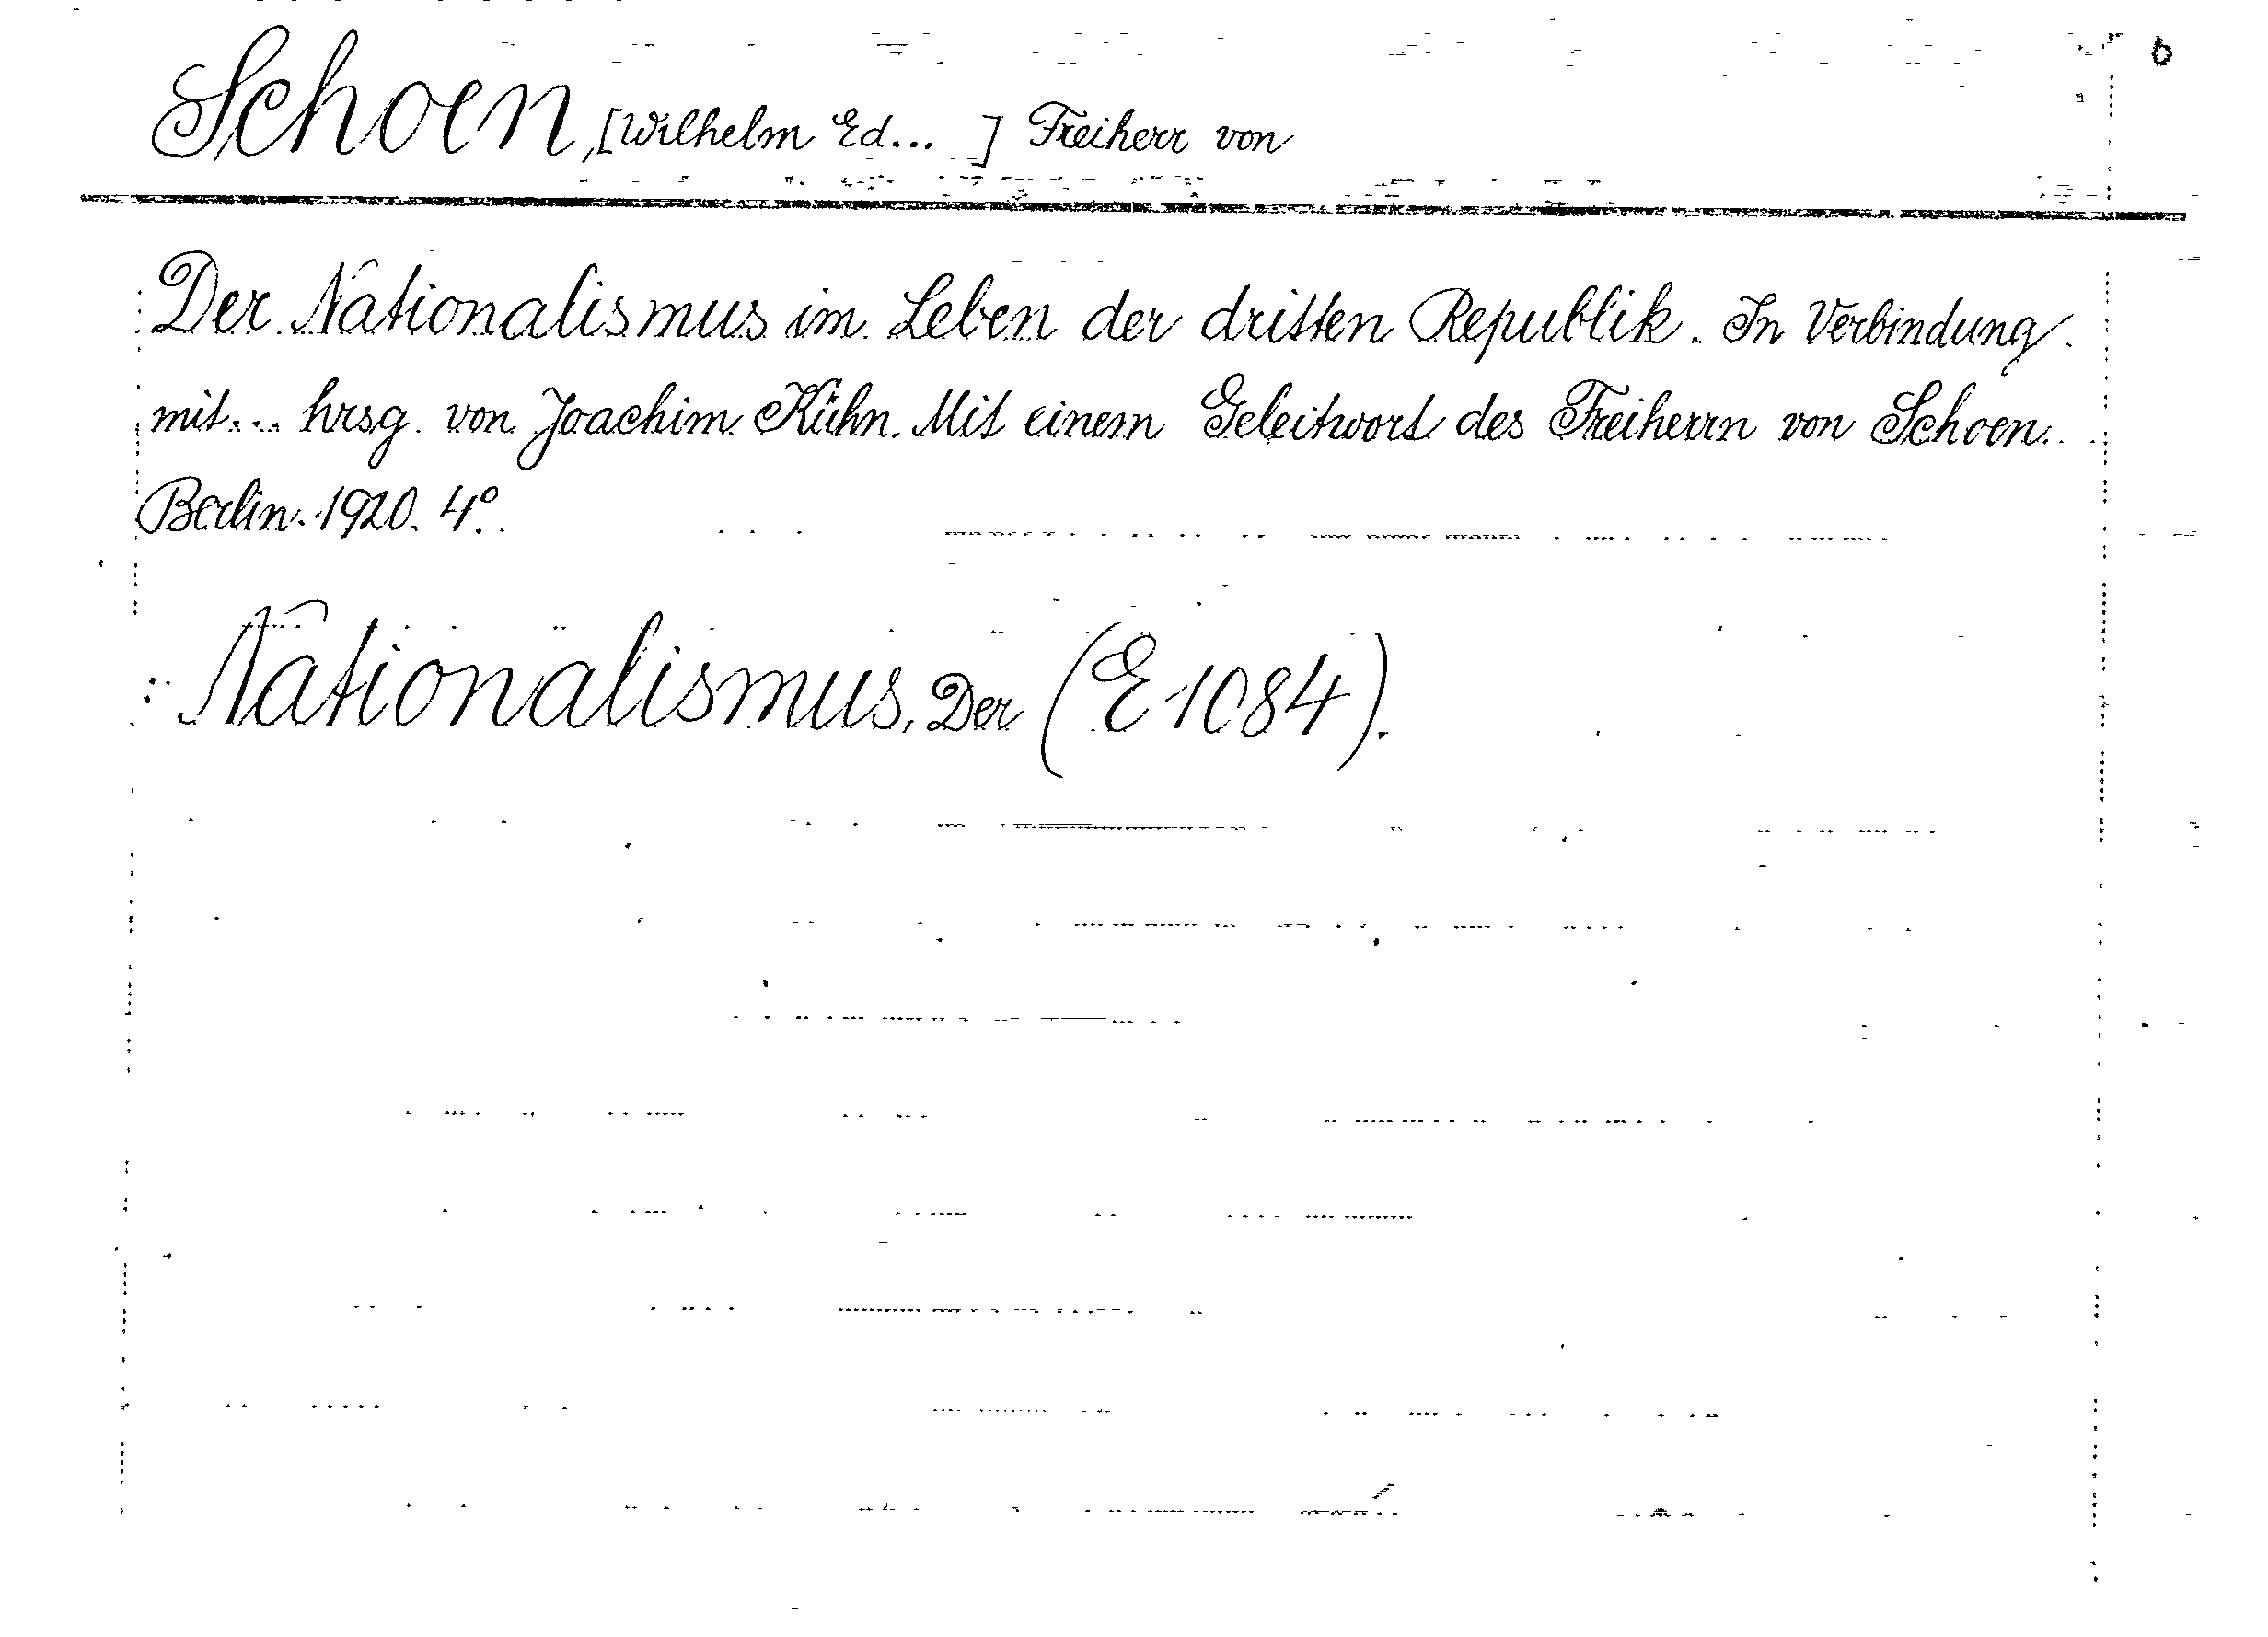 b
Schoen, [Wilhelm Ed... ] Freiherr von
Der Nationalismus im Leben der dritten Republik. In Verbindung
mit... hrsg. von Joachim Kühn. Mit einem Geleitwort des Freiherrn von Schoen.
Berlin. 1920. 4°.
Nationalismus, Der (E 1084).